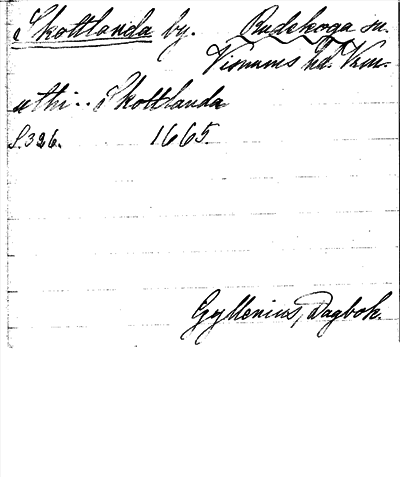 Skottlanda by. Rudskoga sn.
Visnums hd. Vrm.
uthi .. Skottlanda
S.326. 1665.
Gyllenius, Dagbok.